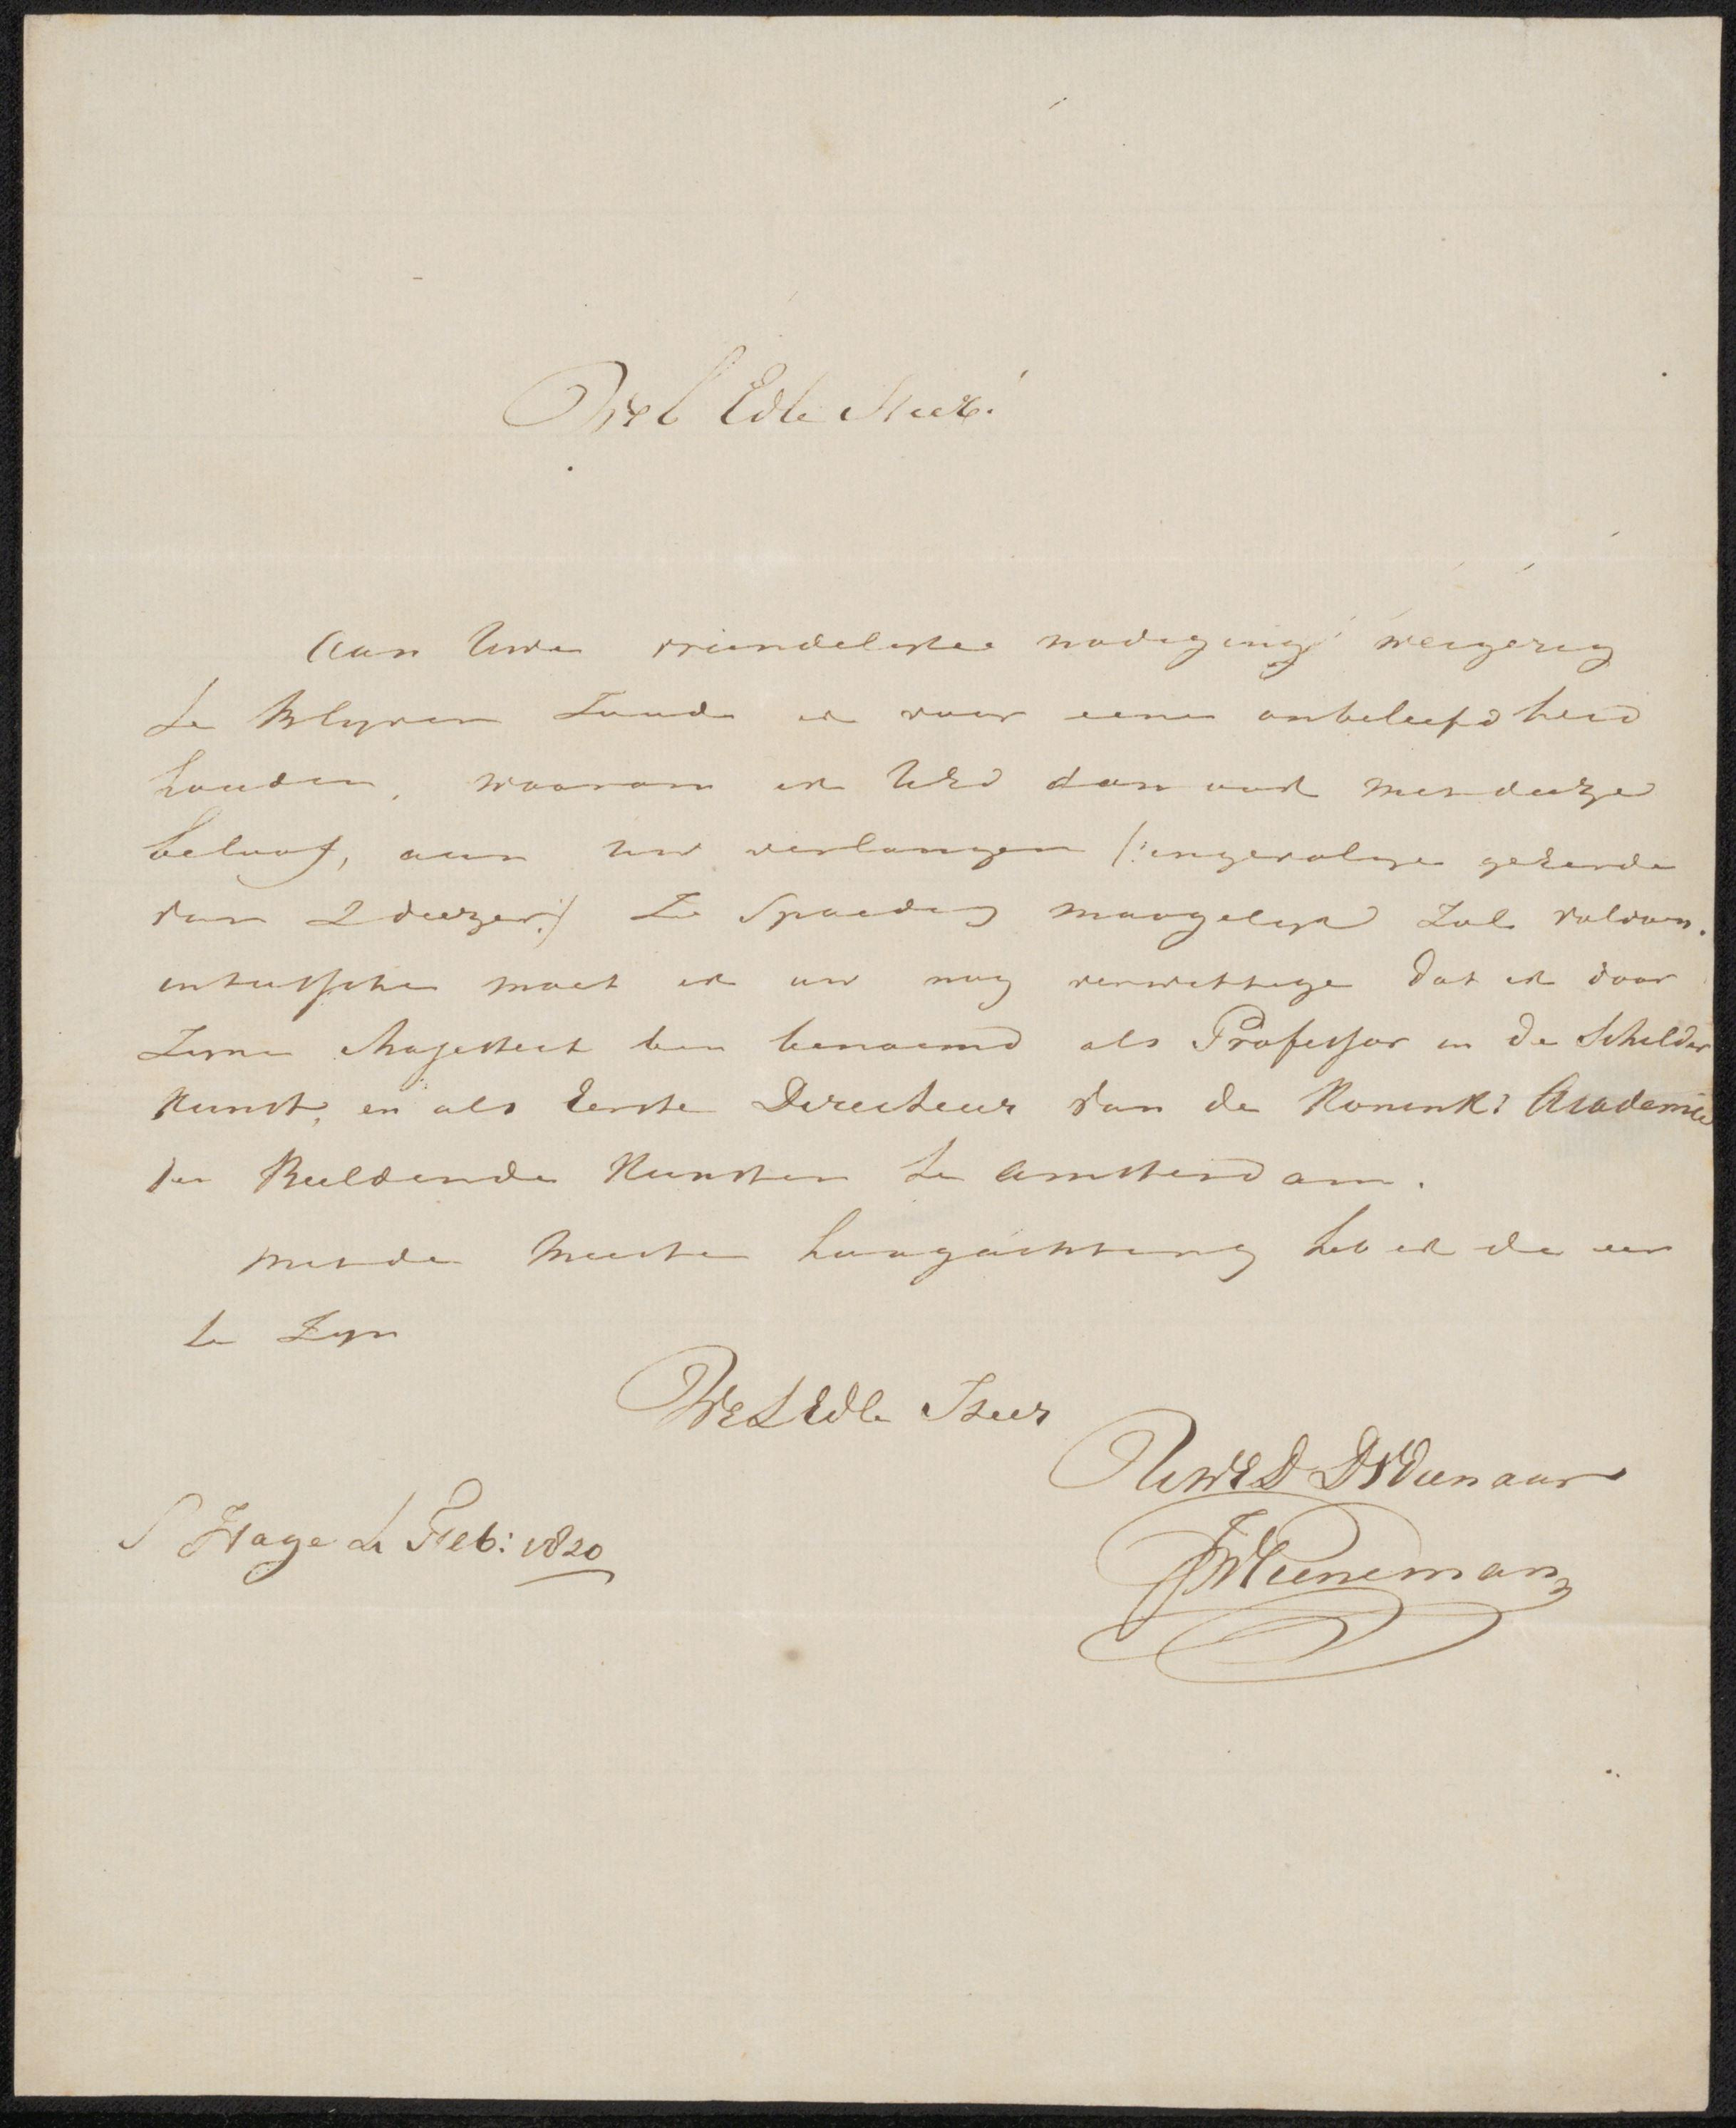 Wel Edle Heer.
Aan Uwe vriendelyke nodiging weigerig
te Blyven Zoude ik voor eene onbeleefdheid
houden, waarom ik UEd dan ook mits deeze
beloof, aan uw verlangen (: ingevolge gekende
van 2 deezer :) Zo Spoedig moogelyk Zal voldoen.
intusschen moet ik uw nog verwittige dat ik door
Zyne Majesteit ben benoemd als Professor in de Schilder
Kunst, en als Eerste Directeur van de Koninkl: Academie
der Beeldende Kunsten te Amsterdam.
met de Meeste hoogachting heb ik de eer
te Zyn
Wel Edle Heer
UWED DWDienaar
S Hage Feb: 1820
JWPieneman